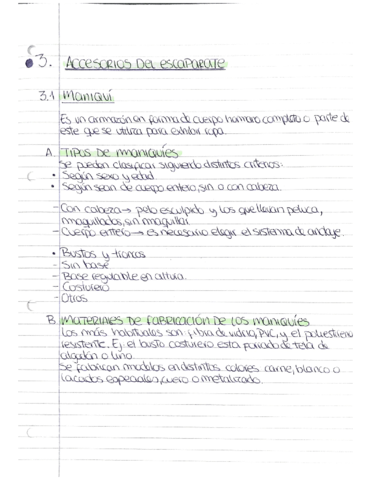 3. Accesorios del escaparate
3.1 Maniquí
Es un armazón en forma de cuerpo humano completo o parte de
este que se utiliza para exhibir ropa.
A. Tipos de maniquíes
Se pueden clasificar siguiendo distintos criterios:
• Según sexo y edad.
• Según sean de cuerpo entero, sin o con cabeza.
- Con cabeza → pelo esculpido y los que llevan peluca,
maquillados, sin maquillar.
- Cuerpo entero → es necesario elegir el sistema de anclaje.
• Bustos y troncos
- Sin base
- Base regulable en altura.
- Costurero
- Otros
B. Materiales de fabricación de los maniquíes
Los más habituales son fibra de vidrio, PVC, y el poliestireno
resistente. Ej. el busto costurero esta forrado de tela de
algodón o lino.
Se fabrican modelos en distintos colores carne, blanco o
lacados especiales, cuero o metalizado.